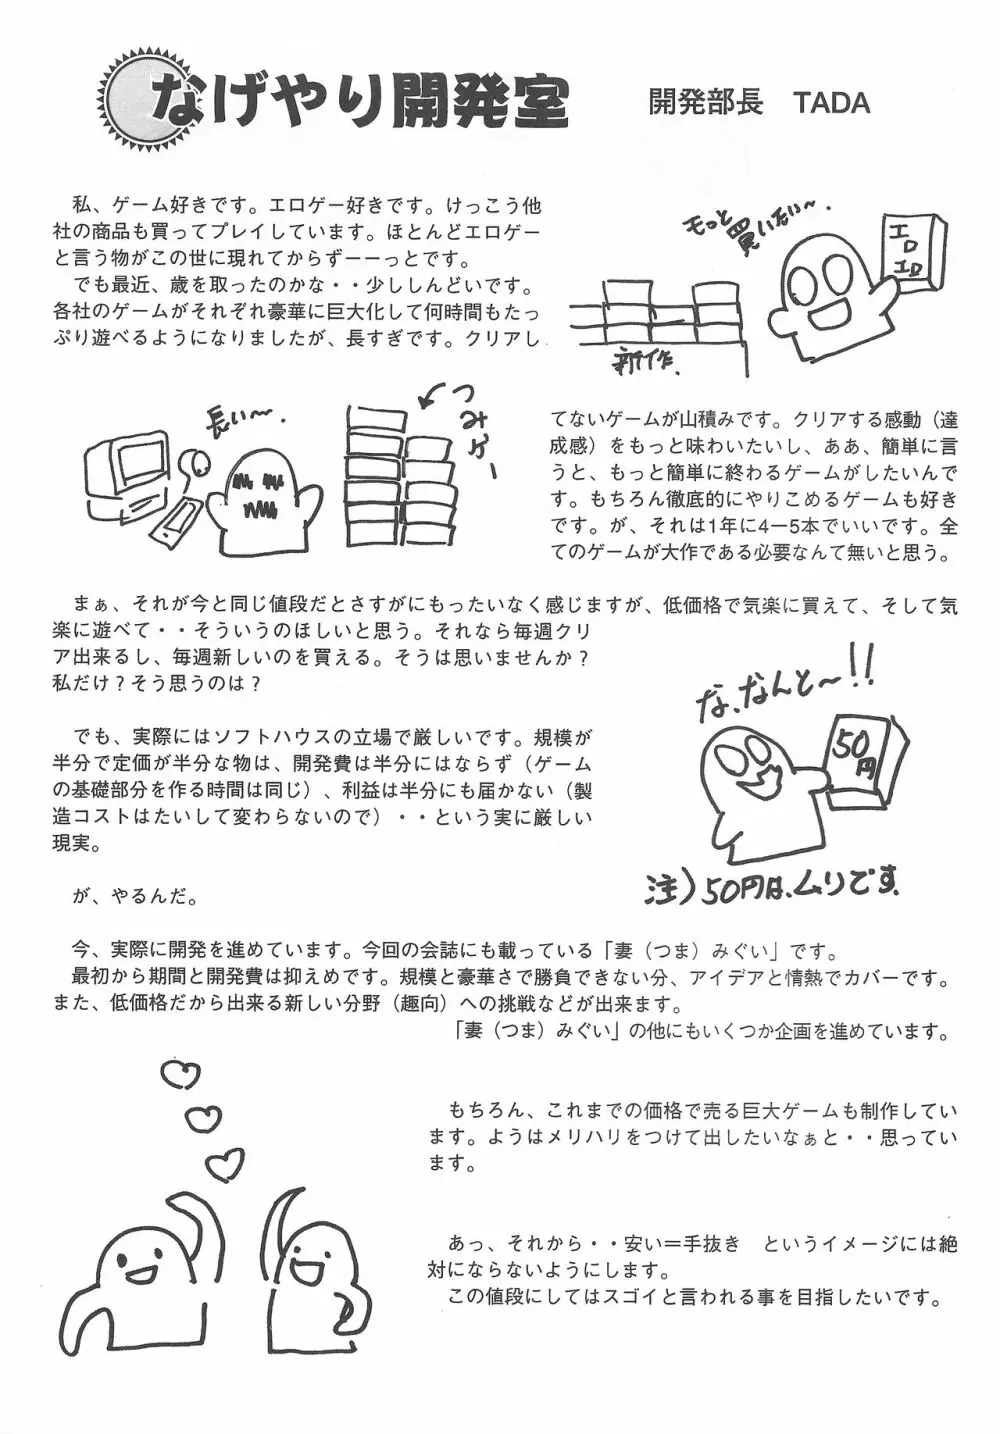 なげやり開発室
開発部長　TADA
　私、ゲーム好きです。エロゲー好きです。けっこう他
社の商品も買ってプレイしています。ほとんどエロゲー
と言う物がこの世に現れてからずーーっとです。
　でも最近、歳を取ったのかな・・少ししんどいです。
各社のゲームがそれぞれ豪華に巨大化して何時間もたっ
ぷり遊べるようになりましたが、長すぎです。クリアし
モっと
買いたい〜.
エロ
エロ
新作.
長い〜.
つみゲー
てないゲームが山積みです。クリアする感動（達
成感）をもっと味わいたいし、ああ、簡単に言
うと、もっと簡単に終わるゲームがしたいんで
す。もちろん徹底的にやりこめるゲームも好き
です。が、それは1年に4ー5本でいいです。全
てのゲームが大作である必要なんて無いと思う。
　まぁ、それが今と同じ値段だとさすがにもったいなく感じますが、低価格で気楽に買えて、そして気
楽に遊べて・・そういうのほしいと思う。それなら毎週クリ
ア出来るし、毎週新しいのを買える。そうは思いませんか？
私だけ？そう思うのは？
　でも、実際にはソフトハウスの立場で厳しいです。規模が
半分で定価が半分な物は、開発費は半分にはならず（ゲーム
の基礎部分を作る時間は同じ）、利益は半分にも届かない（製
造コストはたいして変わらないので）・・という実に厳しい
現実。
な、なんと〜!!
50
円
注）50円は、ムリです.
　が、やるんだ。
　今、実際に開発を進めています。今回の会誌にも載っている「妻（つま）みぐい」です。
　最初から期間と開発費は抑えめです。規模と豪華さで勝負できない分、アイデアと情熱でカバーです。
また、低価格だから出来る新しい分野（趣向）への挑戦などが出来ます。
「妻（つま）みぐい」の他にもいくつか企画を進めています。
　もちろん、これまでの価格で売る巨大ゲームも制作してい
ます。ようはメリハリをつけて出したいなぁと・・思ってい
ます。
　あっ、それから・・安い＝手抜き　というイメージには絶
対にならないようにします。
　この値段にしてはスゴイと言われる事を目指したいです。